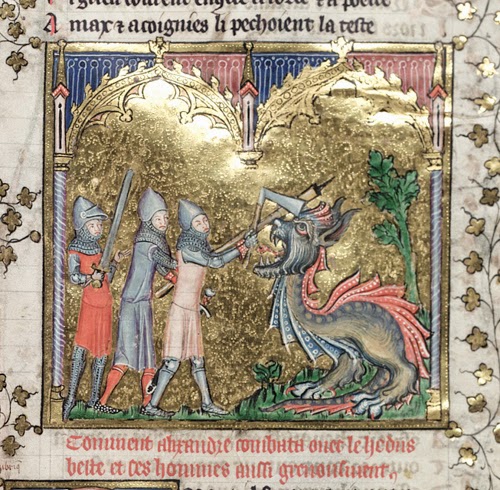 A max ⁊ acoignies li pechoient la teste
Comment alixandre combata ouec le hedus
beste et ces hommes aussi greuousment,